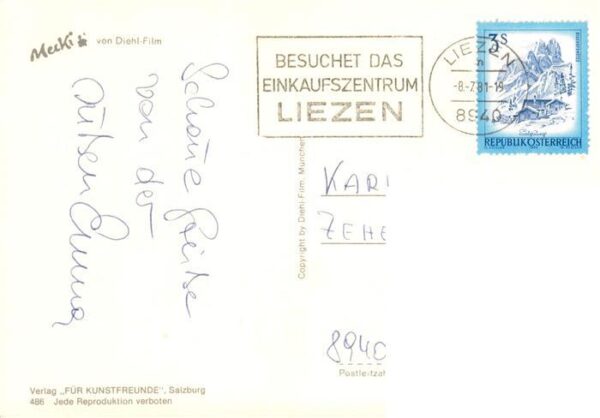 Mecki von Diehl-Film
Schöne Grüße
von der
Anna
BESUCHET DAS
EINKAUFSZENTRUM
LIEZEN
LIEZEN
-8.-7.81-19
8940
3S
REPUBLIK ÖSTERREICH
Copyright by Diehl-Film, München
KARI
ZEHE
8940
Postleitzah
Verlag „FÜR KUNSTFREUNDE", Salzburg
486 Jede Reproduktion verboten